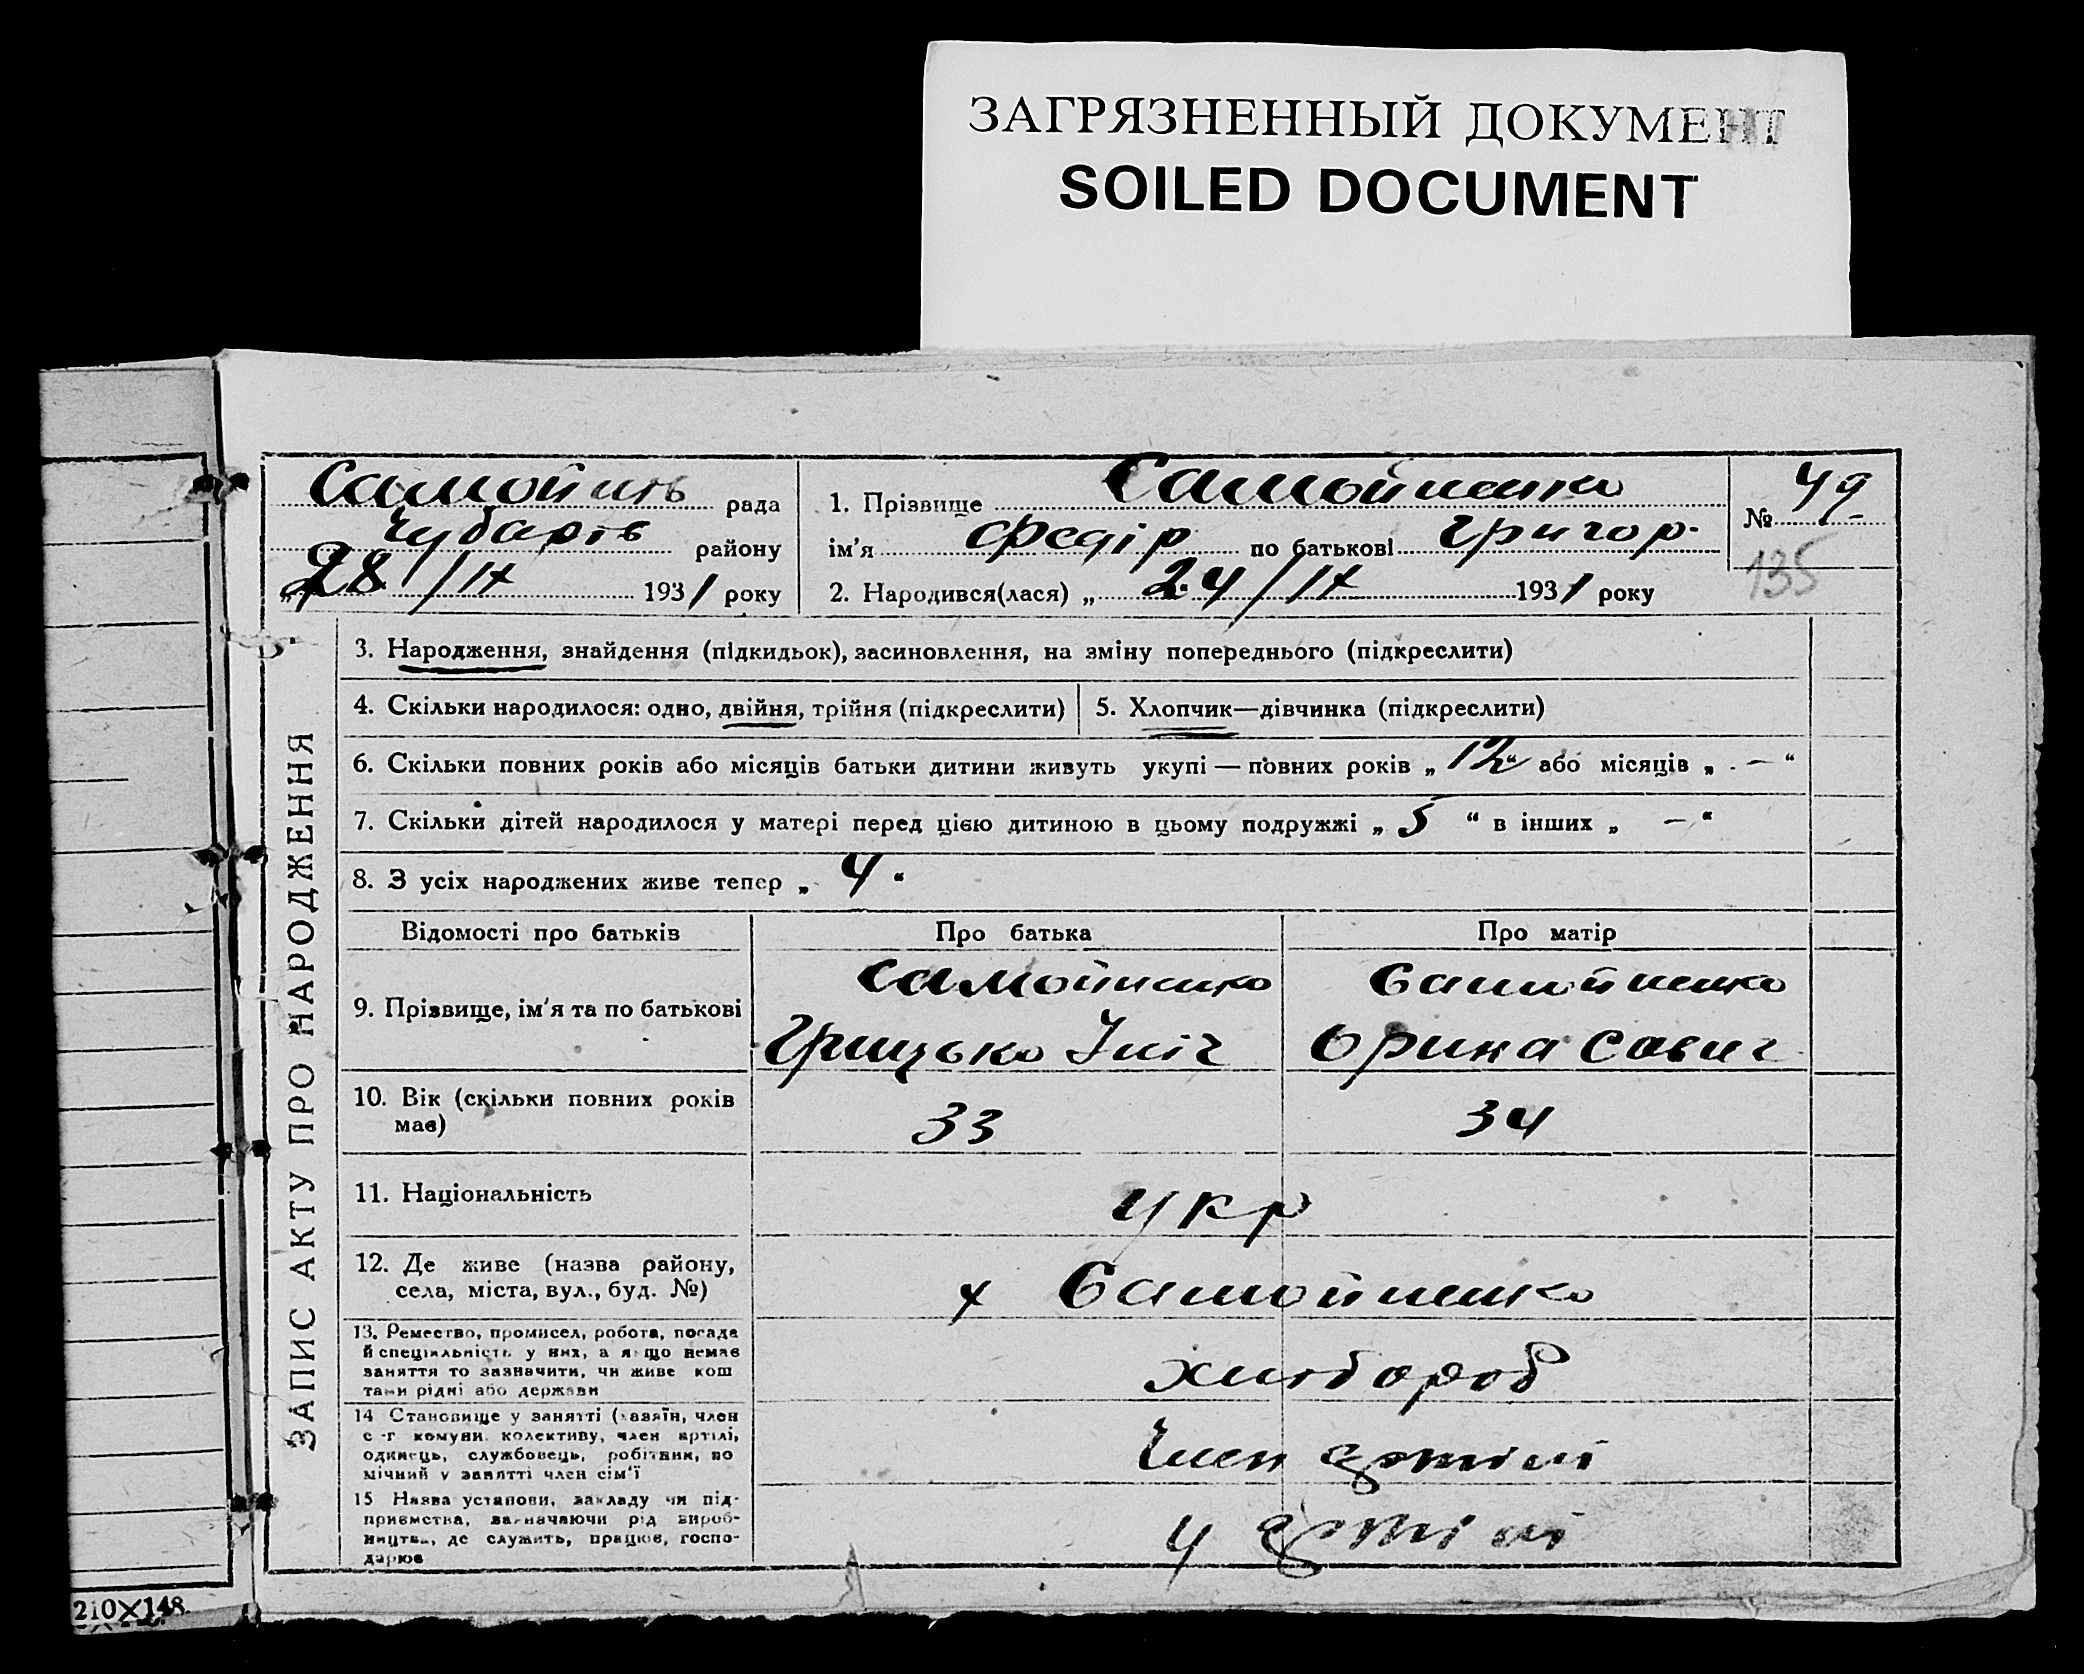 ЗАГРЯЗНЕННЫЙ ДОКУМЕНТ
SOILED DOCUMENT
рада
району
„28/IX 1931 року
1. Прізвище Самойленко
ім'я Федір по батькові Григор.
2. Народився(лася) „24/IX 1931 року
№ 49
135
ЗАПИС АКТУ ПРО НАРОДЖЕННЯ
3. Народження, знайдення (підкидьок), засиновлення, на зміну попереднього (підкреслити)
4. Скільки народилося: одно, двійня, трійня (підкреслити)
5. Хлопчик—дівчинка (підкреслити)
6. Скільки повних років або місяців батьки дитини живуть укупі — повних років „12“ або місяців „ — “
7. Скільки дітей народилося у матері перед цією дитиною в цьому подружжі „ 5 “ в інших „ — “
8. З усіх народжених живе тепер „ 4 “
Відомості про батьків
Про батька
Про матір
9. Прізвище, ім'я та по батькові
Самойленко
Грицько Іліч
Самойленко
Орина Савич
10. Вік (скільки повних років
має)
33
34
11. Національність
укр
12. Де живе (назва району,
села, міста, вул., буд. №)
х Самойленко
13. Ремество, промисел, робота, посада
й спеціяльність у них, а якщо немає
заняття то зазначити, чи живе кош
тами рідні або держави
хлібороб
14 Становище у занятті (хазяїн, член
с-г комуни, колективу, член артілі,
одинець, службовець, робітник, по
мічний у занятті член сім'ї
Член артілі
15 Назва установи, закладу чи під-
приємства, зазначаючи рід вироб-
ництва, де служить, працює, госпо-
дарює
У артілі
210×148